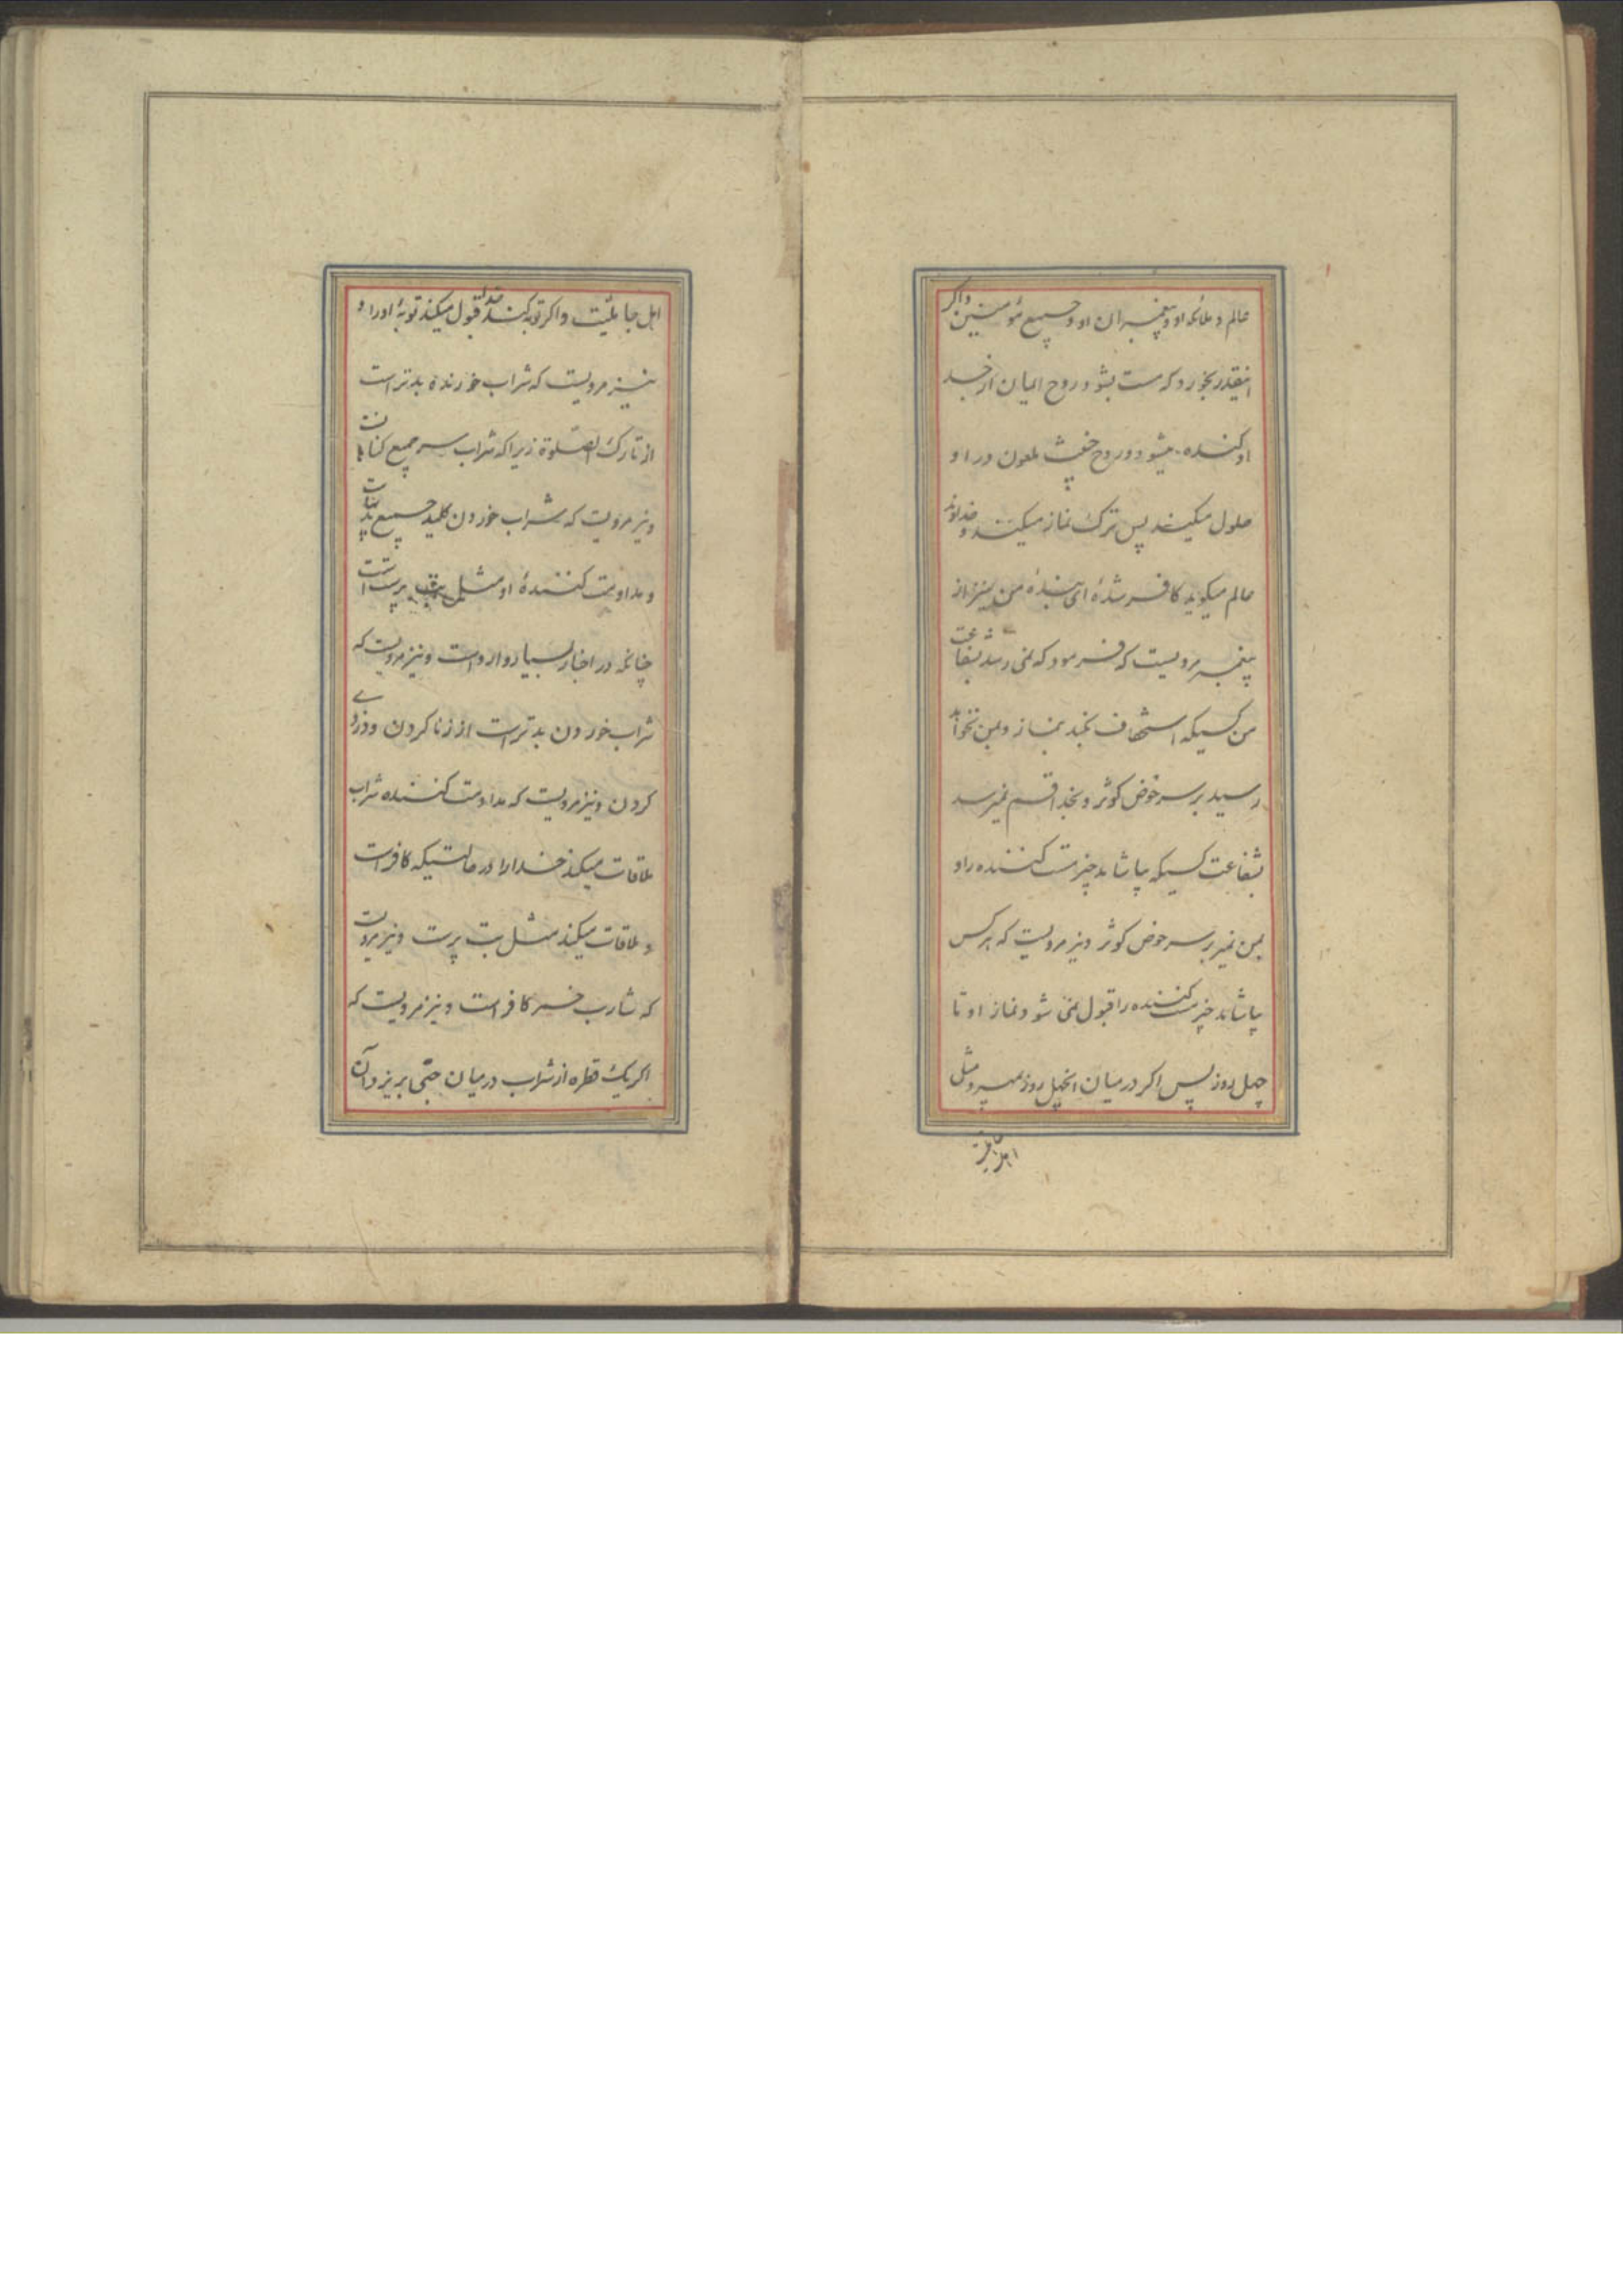 عالم و ملائکه او و پیغمبران او و جمیع مؤمنین و اکر
اینقدر بخورد که مست بشود روح ایمان از جسد
او کنده میشود و روح خبیث ملعون در او
حلول میکند پس ترک نماز میکند و خداوند
عالم میکوید کافر شدهٔ ای بندهٔ من و نیز از
پیغمبر مرویست که فرمود که نمی رسد بشفاعت
من کسیکه استخفاف بکند بنماز و بمن نخواهد
رسید بر سر حوض کوثر و بخدا قسم نمیرسد
بشفاعت کسیکه بیاشامد چیز مست کننده را و
بمن نمیرسد بر سر حوض کوثر و نیز مرویست که هر کس
بیاشامد چیز مست کننده را قبول نمی شود نماز او تا
چهل روز پس اکر در میان انچهل روز بمیرد مثل
اهل جاهلیت
اهل جاهلیّت و اکر توبه کند خدا قبول میکند توبهٔ او را و
نیز مرویست که شراب خورنده بدتر است
از تارک الصّلوة زیرا که شراب سر جمیع کناهانست
و نیز مرویست که شراب خوردن کلید جمیع
و مداومت کنندهٔ او مثل بت پرستست
چنانچه در اخبار بسیار وارد است و نیز مرویست که
شراب خوردن بدتر است از زنا کردن و دزدی
کردن و نیز مرویست که مداومت کننده شراب
ملاقات میکند خدا را در حالتیکه کافر است
و ملاقات میکند مثل بت پرست و نیز مرویست
که شارب خمر کافر است و نیز مرویست که
اکر یک قطره از شراب در میان چاهی بریزد و آن